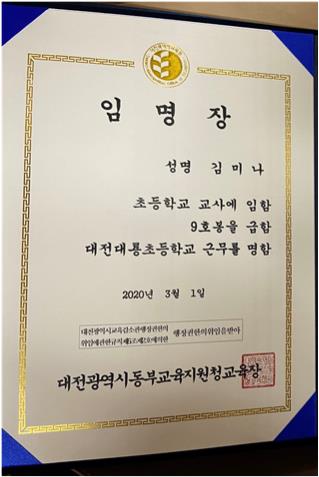 임 명 장
성명 김 미 나
초등학교 교사에 임함
9호봉을 급함
대전대룡초등학교 근무를 명함
2020년 3월 1일
대전광역시교육감소관행정권한의
위임에관한규칙제5조제2호에의한
행정권한의위임을받아
대전광역시동부교육지원청교육장